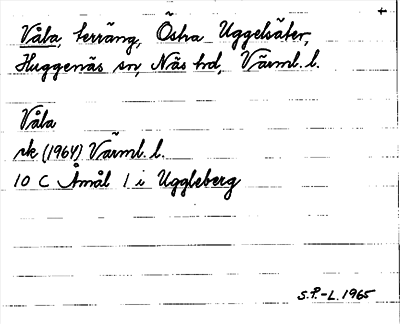 +
Våla, terräng, Östra Uggelsäter,
Huggenäs sn, Näs hd, Värml. l.
Våla
rk (1964) Värml. l.
10 C Åmål 1 i Uggleberg
S.P.-L. 1965